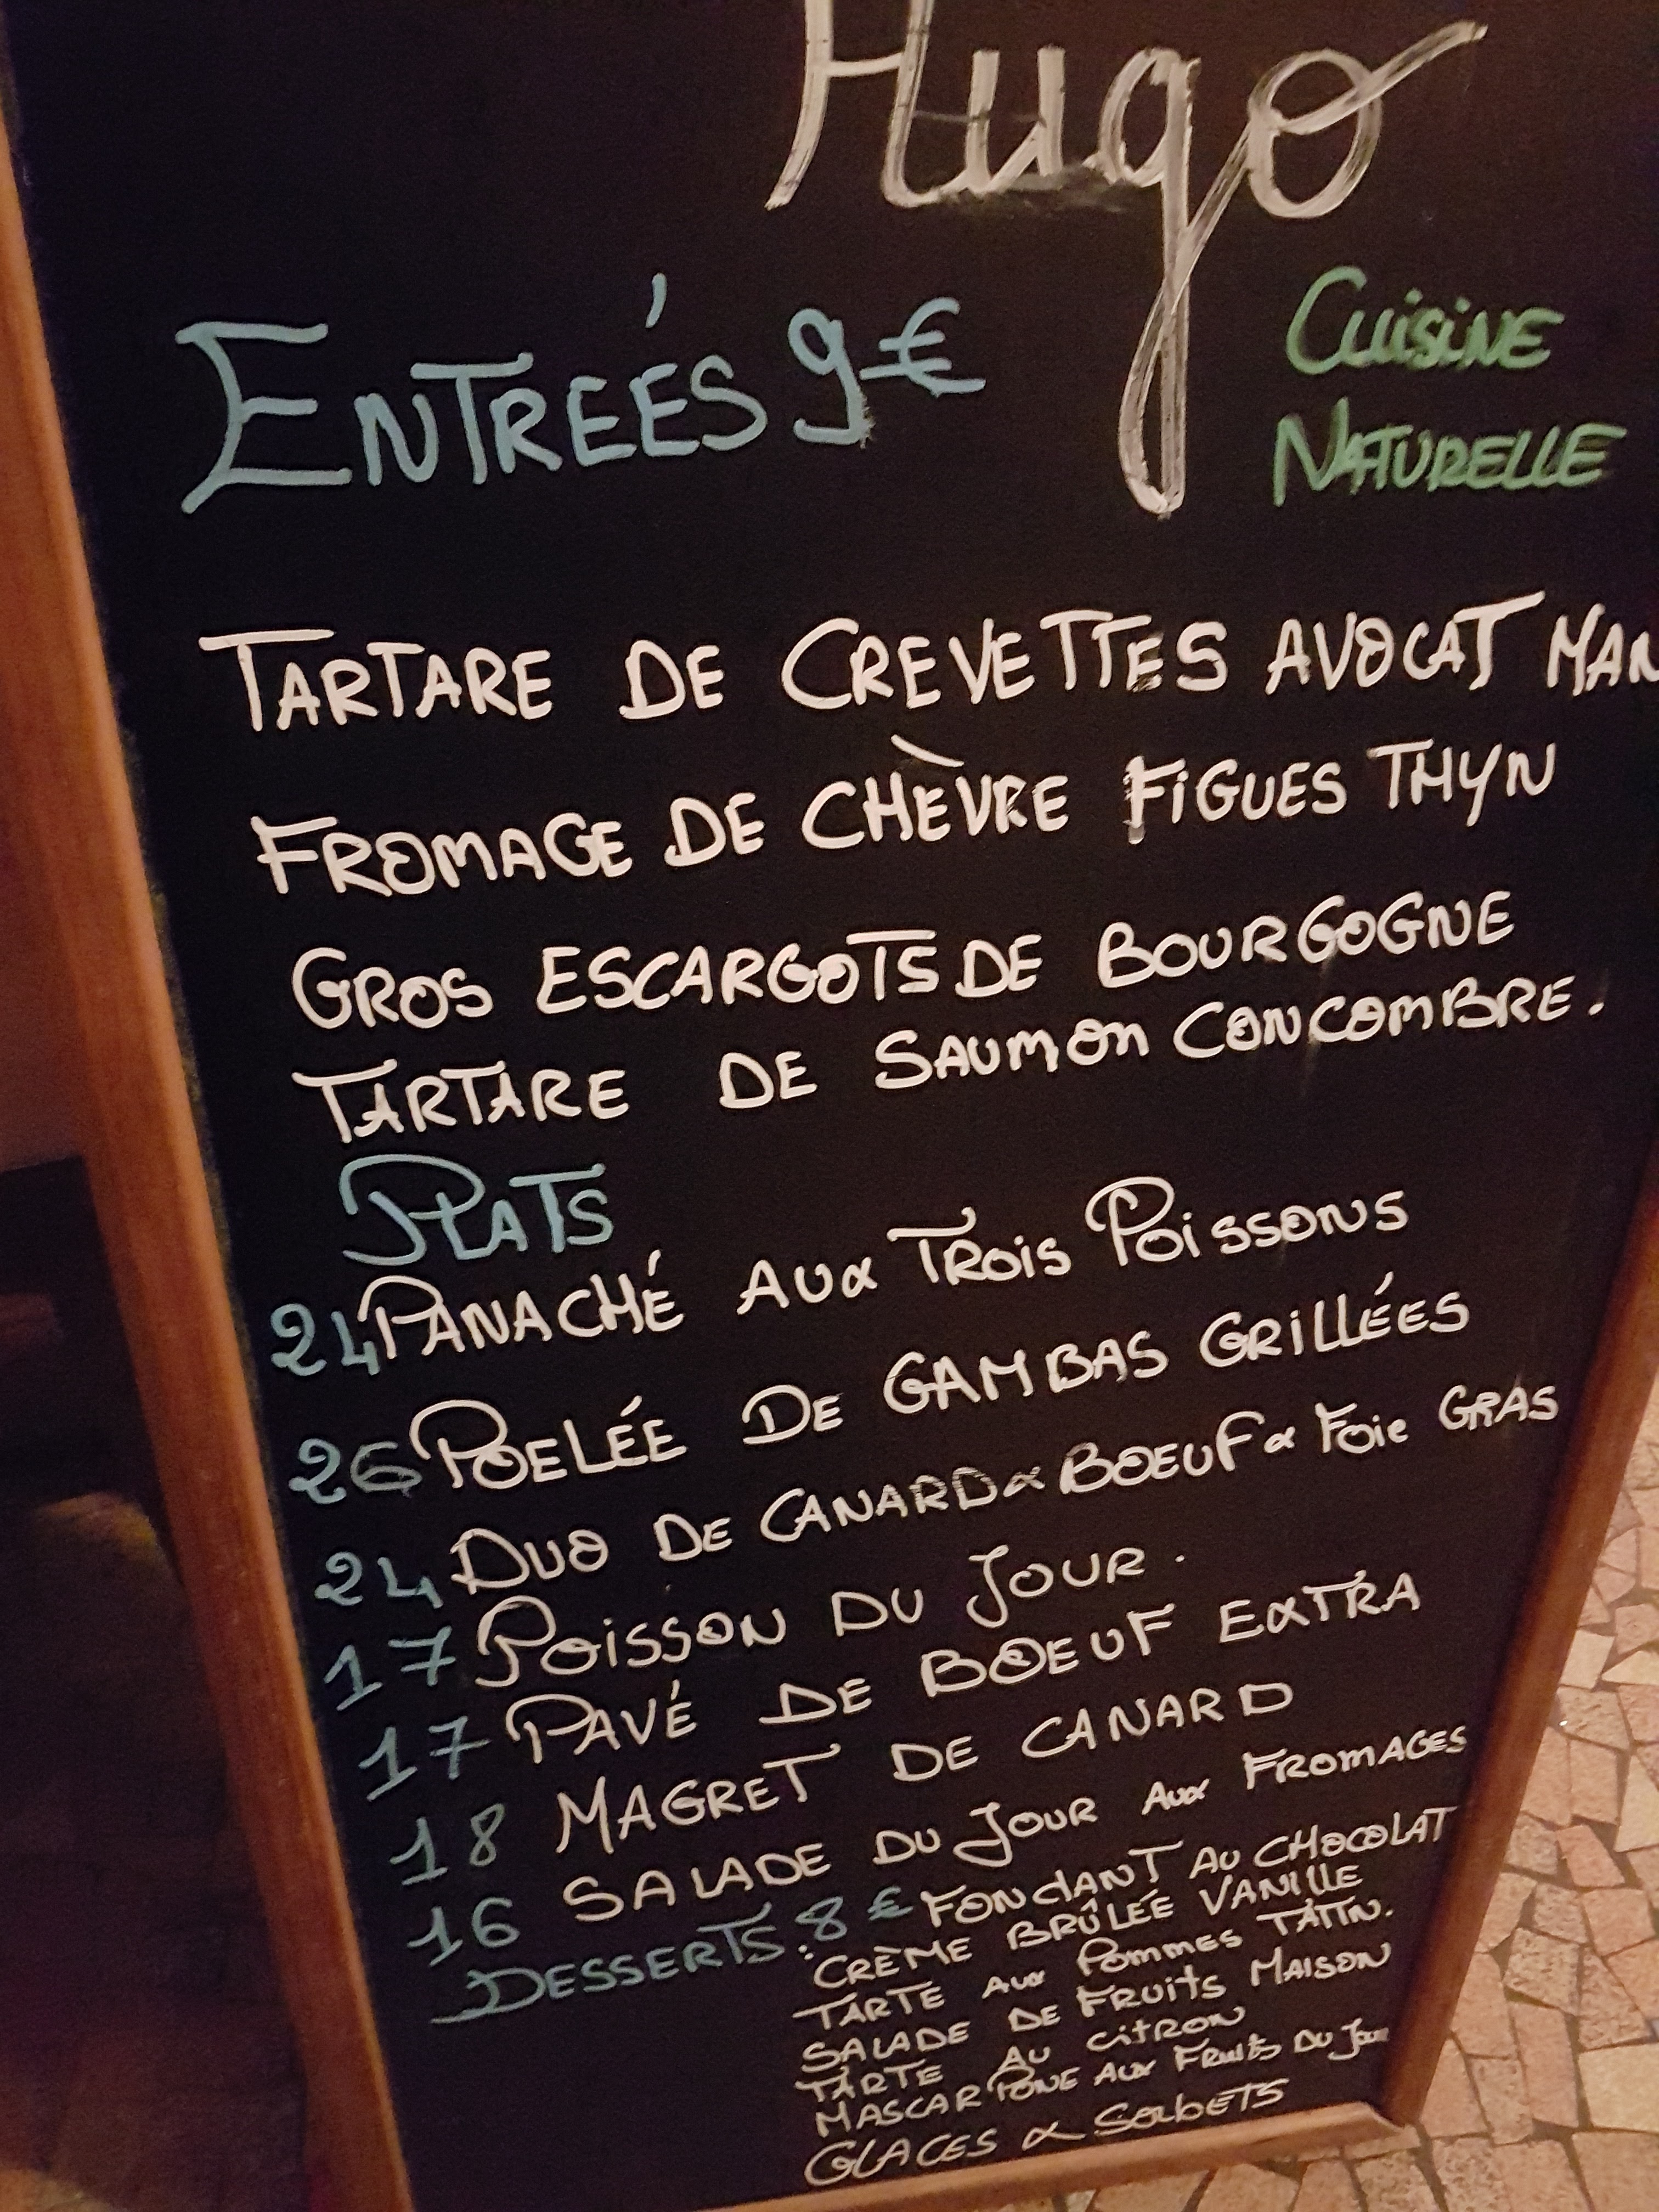 Hugo
ENTREÉS 9€
CUISINE
NATURELLE
TARTARE DE CREVETTES AVOCAT MAN
FROMAGE DE CHÈVRE FIGUES THYN
GROS ESCARGOTS DE BOURGOGNE
TARTARE DE SAUMON CONCOMBRE.
PLATS
24 PANACHÉ AUX TROIS POISSONS
26 POELÉE DE GAMBAS GRILLÉES
24 DUO DE CANARD & BOEUF & FOIE GRAS
17 POISSON DU JOUR.
17 PAVÉ DE BOEUF EXTRA
18 MAGRET DE CANARD
16 SALADE DU JOUR AUX FROMAGES
DESSERTS: 8€ FONDANT AU CHOCOLAT
CRÈME BRÛLÉE VANILLE
TARTE AUX POMMES TATIN.
SALADE DE FRUITS MAISON
TARTE AU CITRON
MASCARPONE AUX FRUITS DU JOUR
GLACES & SORBETS